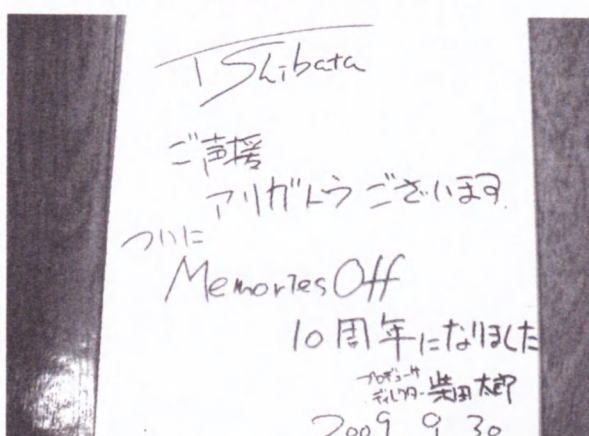 T Shibata
ご声援
アリガトウございます.
ついに
Memories Off
10周年になりました
プロデューサ
ディレクター 柴田太郎
2009 9 30